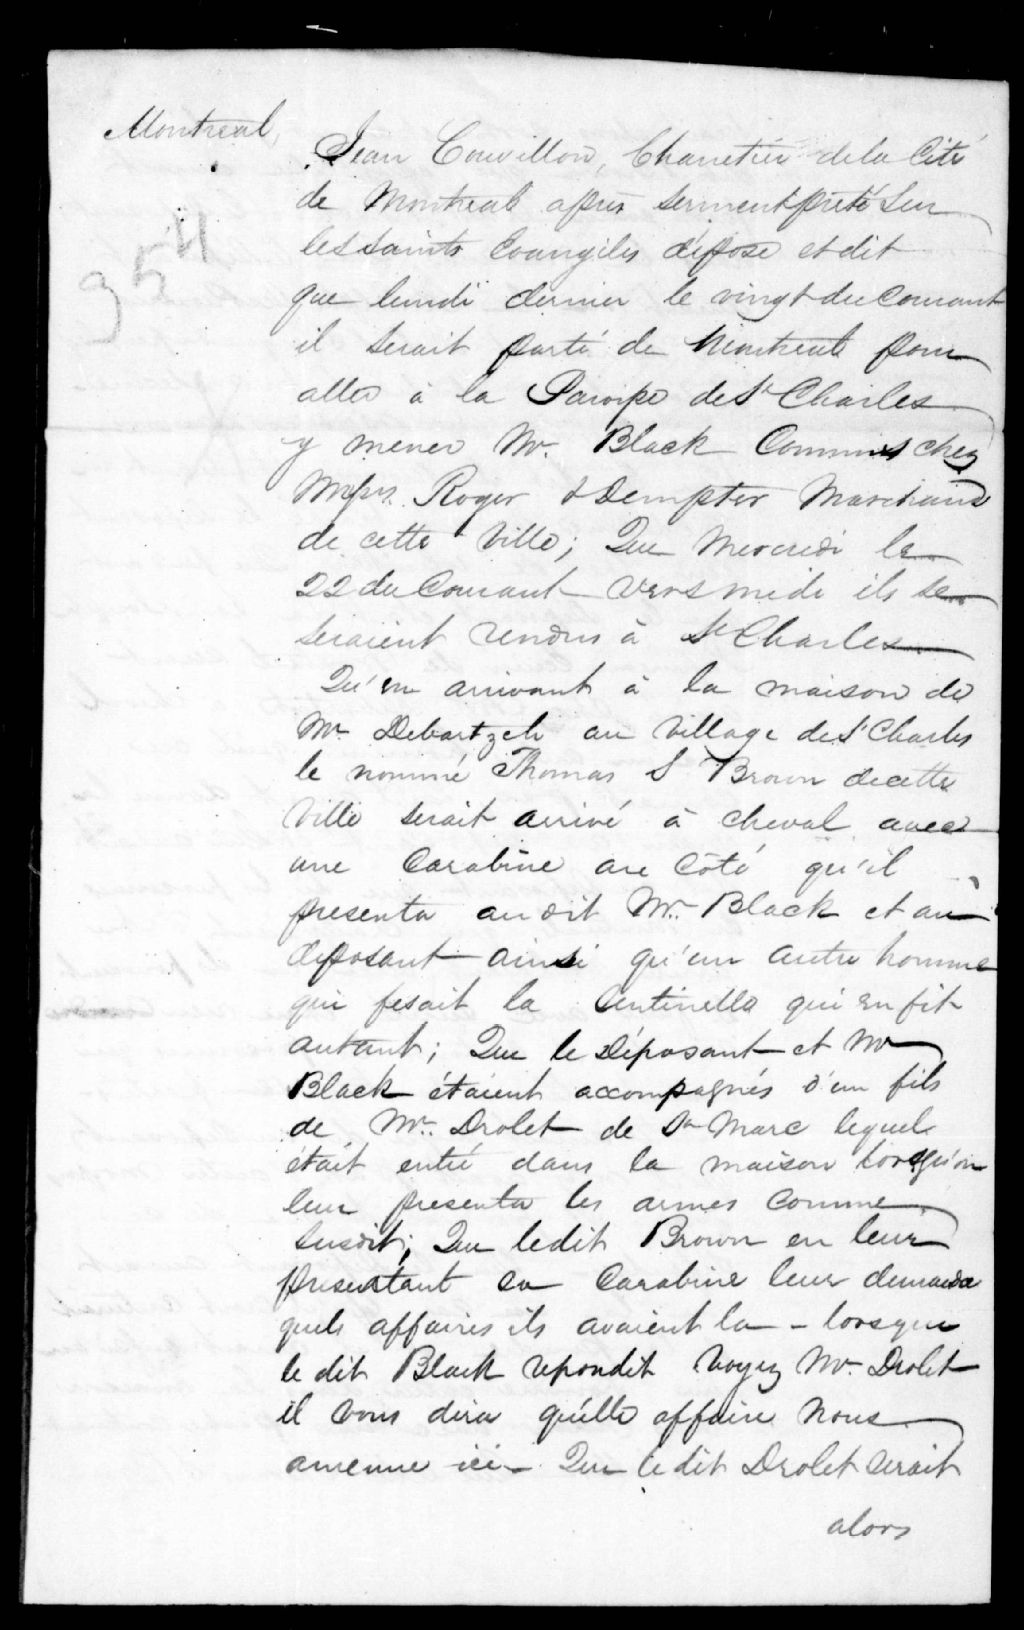 Montreal,
954
Jean Couvillon, Charretier de la Cité
de Montreal après serment prété sur
les saints Evangiles dépose et dit
que lundi dernier le vingt du Courant
il serait parti de Montreal pour
aller à la Paroisse de St Charles
y mener Mr. Black Commis chez
Messrs. Roger & Dempter Marchand
de cette Ville; Que Mercredi le
22 du Courant vers midi ils se
seraient rendus à St Charles
Qu'en arrivant à la maison de
Mr Debartzch au Village de St Charles
le nommé Thomas S Brown de cette
Ville serait arrivé à cheval avec
une Carabine au Côté qu'il
presenta au dit Mr. Black et au
déposant ainsi qu'un autre homme
qui fesait la Sentinelle qui en fit
autant; Que le Déposant et Mr
Black étaient accompagnés d'un fils
de Mr. Drolet de St Marc lequel
était entré dans la maison lorsqu'on
leur presenta les armes comme
susdit; Que le dit Brown en leur
presentant sa Carabine leur demanda
quels affaires ils avaient la - lorsque
le dit Black repondit Voyez Mr. Drolet
il vous dira quélle affaire nous
amenne ici - Que le dit Drolet serait
alors